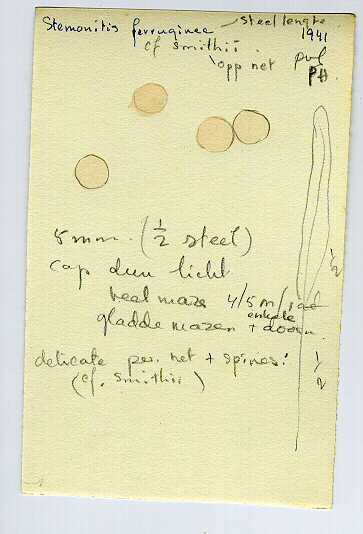 Stemonitis ferruginee steel lengte
cf smithii. 1941
opp net pvl
PH.
5 mm. (½ steel)
cap dun licht
veel maze 4/5 m/
gladde mazen + enkele doorn.
½
delicate per. net + spines!
(cf. smithii)
½